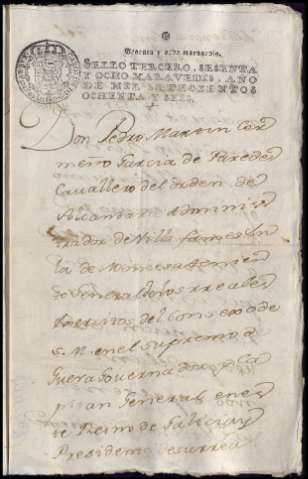 Sesenta y ocho maravedis.
SELLO TERCERO, SESENTA
Y OCHO MARAVEDIS, AÑO
DE MIL SETECIENTOS
OCHENTA Y SEIS.
Don Pedro Martin Cer
meño Garcia de Paredes
Cavallero del Orden de
Alcantara Adminis
trador de Villa fames en
la de Montesa themien
te General de los rreales
exercitos del Consexo de
S. M. en el supremo de
Guerra Governador y Ca
pitan General en es
te Reino de Galicia y
Presidente de su rrea